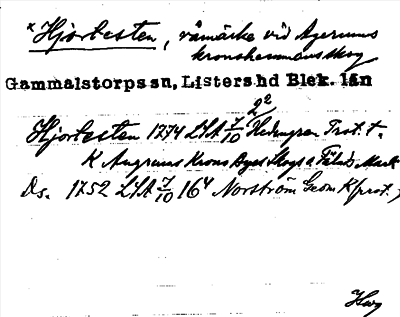 *Hjortesten, råmärke vid Agerums
kronohemmans skog
Gammalstorps sn, Listers hd Blek. län
Hjortesten 1774 LSA 7/10 22 Hedengren Prot. t.
K Angrums Krons Byes Skogs a Fälads Mark
Ds. 1752 LSA 7/10 16 Norström Geom K prot.